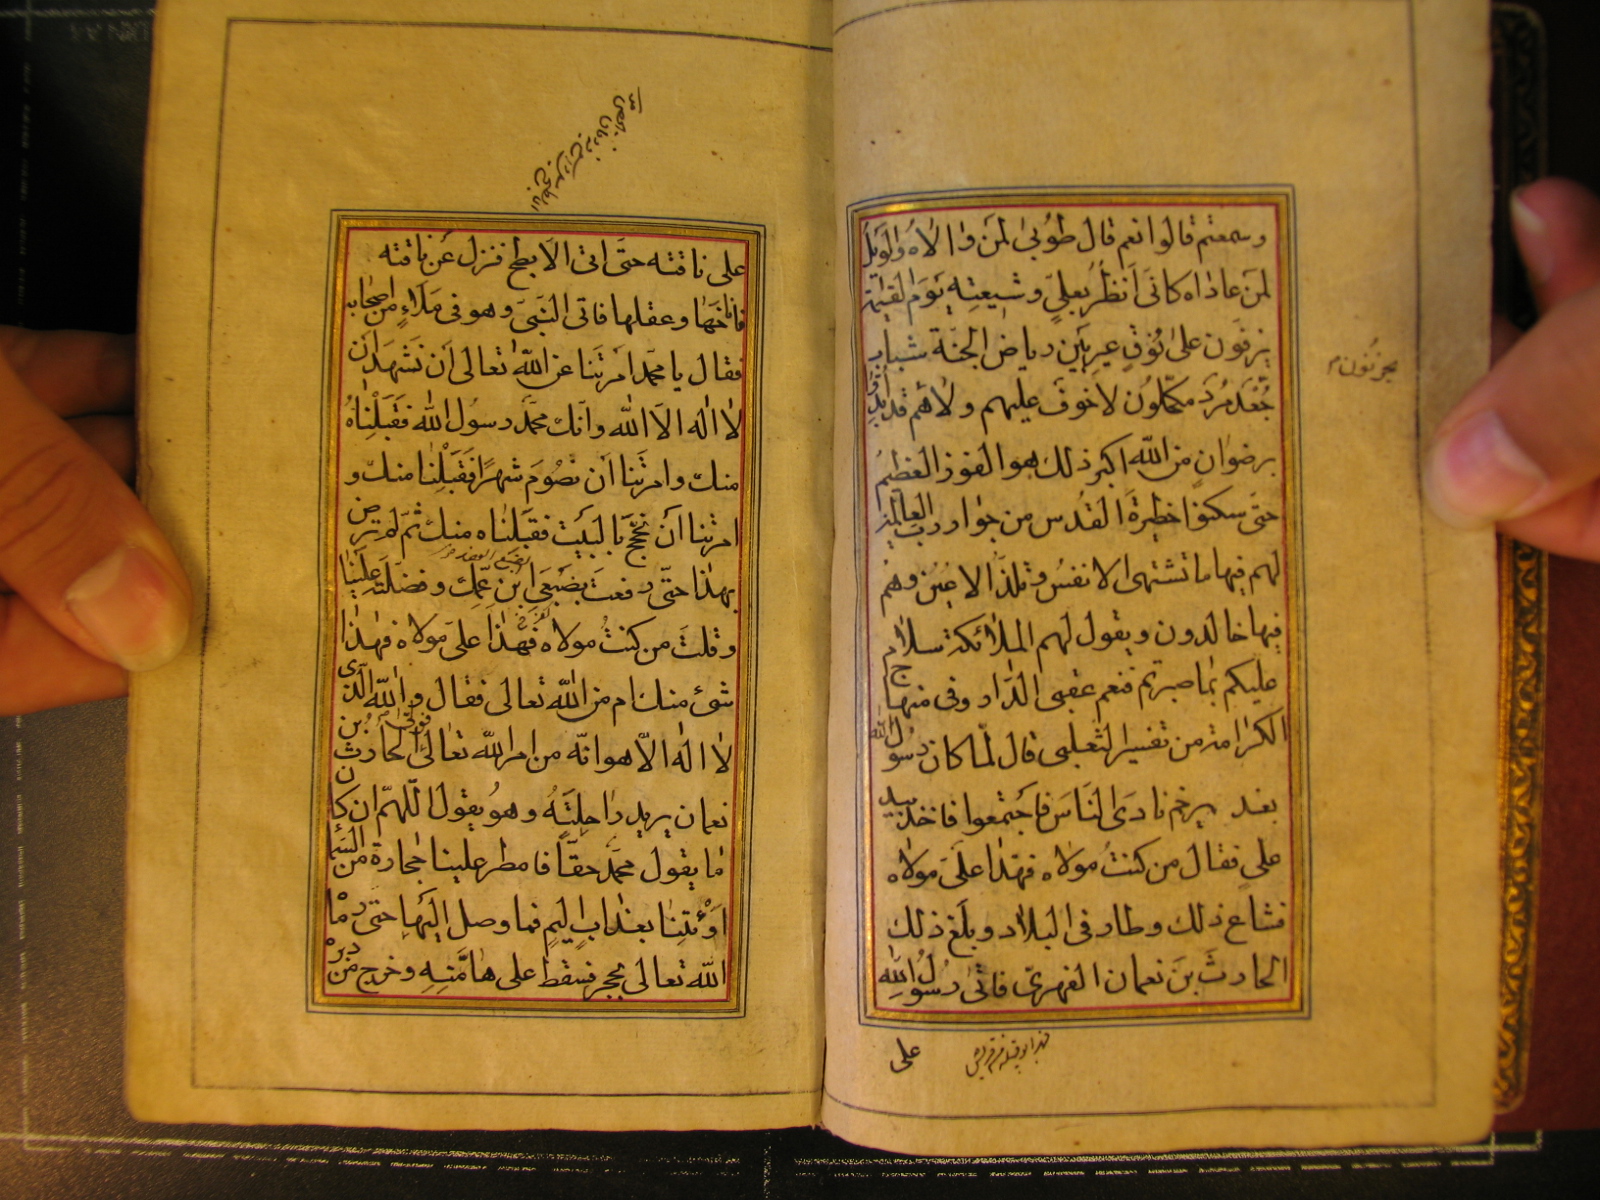 وسمعتم قالوا نعم قال طُوبىٰ لمَن والاهُ والوَيلُ
لمَن عاداه كانّى اَنظُرُ بعلىٍّ وشيعتِه يَومَ القيٰمة
يزفّون على نُوُقٍ عن رياض الجنّة شباب
مُرد مكحّلون لا خوفَ عليهم ولا هُم
يحزنُون م
برضوانٍ من اللّه اكبر ذلك هو الفوز العظيمُ
حتّى سكنوا حظيرةَ القدُس من جوار ربّ العالمين
لهم فيها ما تشتهى الانفسُ وتلذّ الاعيُن وهُم
فيها خالدون ويقول لهم الملائكة سلامٌ
عليكم بما صبرتم فنعم عقبى الدّار وفى منهاج
الكرامة من تفسير الثعلبى قال لمّا كان رسُولُ اللّه
بغدير خم نادى النّاسَ فاجتمعوا فاخذ بيد
علىٍ فقال من كنتُ مولاه فهٰذا علىّ مولاه
فشاع ذلك وطار فى البلاد وبلَغ ذلك
الحارثَ بنَ نعمان الفهرىّ فاتىٰ رسُولُ اللّه
على
على ناقته حتّى اتى الابطح فنزل عن ناقته
فاناخَها وعقلها فاتى النّبىّ وهو فى مَلَاءٍ من اصحابه
فقال يا محمّد امرتَنا عن اللّه تعالى اَن نَشهَدَ ان
لا اله الّا اللّه وانّك محمّد رسُول اللّه فَقَبِلناهُ
منك وامرتَنا اَن نصُومَ شهرًا فَقَبِلنٰا منك و
امرتَنا اَن نحُجَّ بالبَيت فقبلناه منك ثمّ لم ترض
بهٰذا حتّى رفعتَ بضَبعَىِ ابنِ عمّك وفضّلتَه علينا
وقلتَ من كنتُ مولاه فهٰذا علىّ مولاه فهٰذا
شئ منك ام من اللّه تعالى فقال واللّه الّذى
لا اله الّا هو انّه من امر اللّه تعالى فولّى الحارث بُن
نعمان يريد راحِلتَه وهو يقول اللّهمّ ان كان
ما يقول محمّد حقّاً فامطر علينا حجارة من السّماء
اَو ائتِنا بعذابٍ اليمٍ فما وصل اليها حتّى رماه
اللّه تعالى بحجر فسقط على هامّتِهِ وخرج من دبره